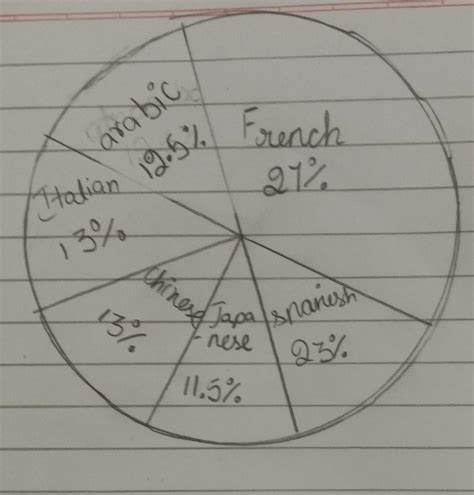 arabic
12.5%
French
27%
Italian
13%
Chinese
13%
Japa
-nese
11.5%
spanish
23%